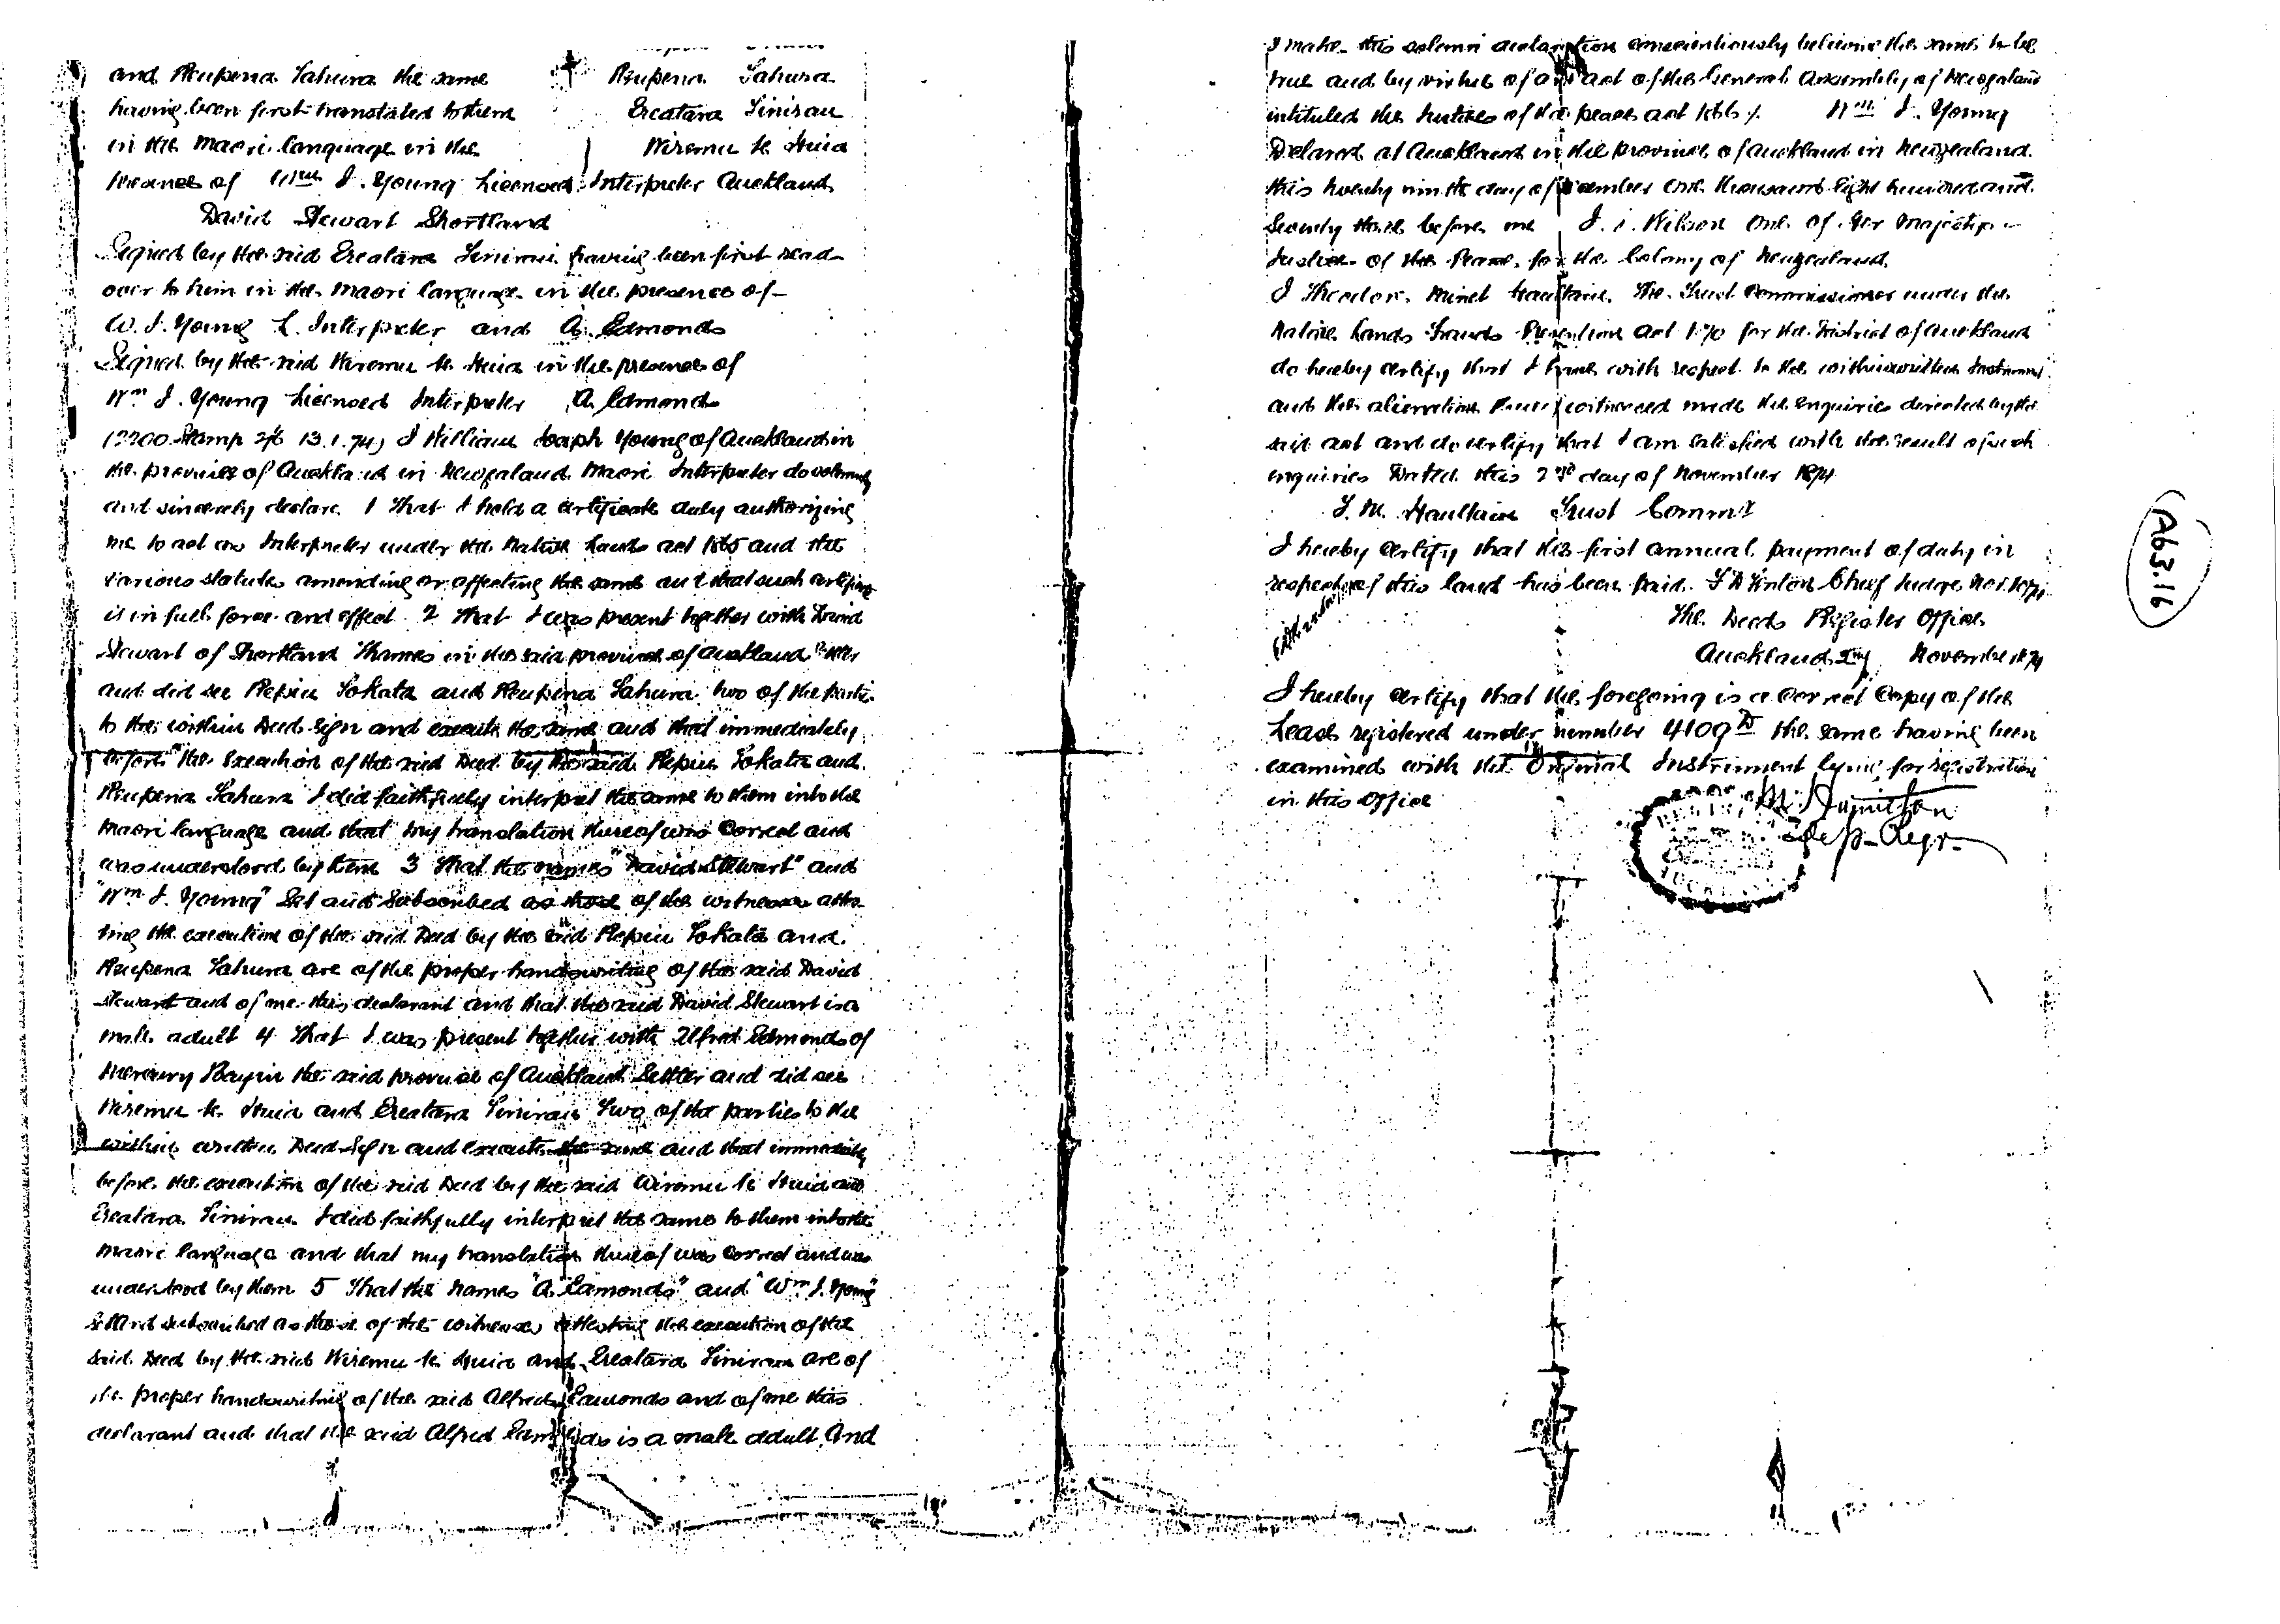 and Reupena Tahura the same
having been first translated to them
in the Maori language in the
presence of Wm J. Young Licensed Interpreter Auckland
Reupena Tahura
Ereatara Tinirau
Wiremu te Huia
David Stewart Shortland
Signed by the said Ereatara Tinirau having been first read
over to him in the Maori language in the presence of
W. J. Young L. Interpreter and A. Edmonds
Signed by the said Wiremu te Huia in the presence of
Wm J. Young Licensed Interpreter A. Edmonds
(2200 Stamp 2/6 13.1.74) I William Joseph Young of Auckland in
the province of Auckland in Newzealand Maori Interpreter do solemnly
and sincerely declare 1 That I hold a certificate duly authorizing
me to act as Interpreter under the Native Lands act 1865 and the
various statutes amending or affecting the same and that such
is in full force and effect 2 That I was present together with David
Stewart of Shortland Thames in the said province of Auckland
and did see Repiu Tokata and Reupena Tahura two of the parties
to the within Deed sign and execute the same and that immediately
before the execution of the said Deed by the said Repiu Tokata and
Reupena Tahura I did faithfully interpret the same to them into the
Maori language and that my translation thereof was Correct and
was understood by them 3 That the names "David Stewart" and
"Wm J. Young" Set and Subscribed as those of the witnesses attes
ting the execution of the said Deed by the said Repiu Tokata and
Reupena Tahura are of the proper handwriting of the said David
Stewart and of me this declarant and that the said David Stewart is a
male adult 4 That I was present together with Alfred Edmonds of
Mercury Bay in the said province of Auckland Settler and did see
Wiremu te Huia and Ereatara Tinirau Two of the parties to the
within written Deed Sign and execute the same and that immediately
before the execution of the said Deed by the said Wiremu te Huia and
Ereatara Tinirau I did faithfully interpret the same to them into the
Maori language and that my translation thereof was Correct and was
understood by them 5 That the names "A. Edmonds" and "Wm J. Young"
Set and subscribed as those of the witnesses attesting the execution of the
said Deed by the said Wiremu te Huia and Ereatara Tinirau are of
the proper handwriting of the said Alfred Edmonds and of me this
declarant and that the said Alfred Edmonds is a male adult And
I make this solemn declaration conscientiously believing the same to be
true and by virtue of an act of the General Assembly of Newzealand
intituled the Justices of the peace act 1866 Wm J. Young
Declared at Auckland in the province of Auckland in Newzealand
this twenty ninth day of one thousand Eight hundred and
Seventy three before me J. Wilson one of Her Majestys
Justices of the Peace for the Colony of Newzealand
I Theodore Minet Haultain The Trust Commissioner under the
Native Lands Frauds Prevention Act 1870 for the District of Auckland
do hereby certify that I have with respect to the withinwritten Instrument
and the alienation thereby witnessed made the Enquiries directed by the
said act and do certify that I am satisfied with the result of such
enquiries Dated this 2nd day of November 1874
T. M. Haultain Trust Commr
I hereby certify that the first annual payment of duty in
respect of this land has been paid. F D Fenton Chief Judge
The Deeds Register Office
Auckland November 1874
I hereby certify that the foregoing is a Correct Copy of the
Lease registered under number 4109D the same having been
examined with the Original Instrument lying for registration
in this Office
Dep-Regr
Ab3.16